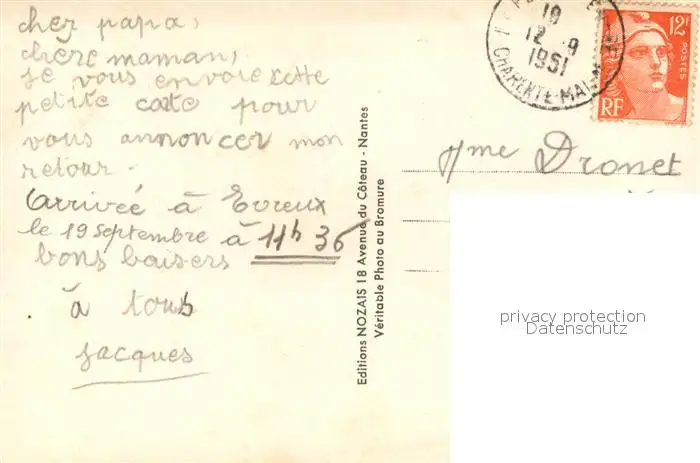 cher papa,
chere maman,
je vous envoie cette
petite carte pour
vous annoncer mon
retour.
Arrivée à Evreux
le 19 septembre à 11h 36
bons baisers
à tous
jacques
Editions NOZAIS 18 Avenue du Côteau - Nantes
Véritable Photo au Bromure
18
12 - 9
1951
CHARENTE-MARME
12F
POSTES
RF
Mme Dronet
privacy protection
Datenschutz